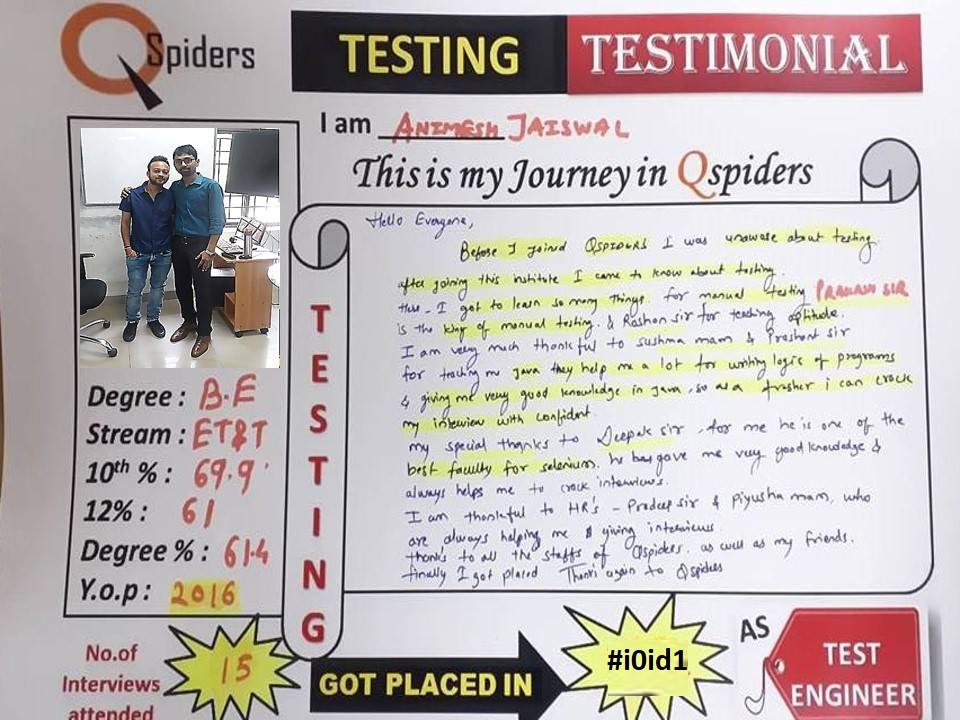 QSpiders
TESTING TESTIMONIAL
I am ANIMESH JAISWAL
This is my Journey in Qspiders
Hello Everyone,
Before I joined QSPIDERS I was unaware about testing.
after joining this institute I came to know about testing.
Here I got to learn so many things. for manual testing PRAMAN SIR
is the king of manual testing. & Roshan sir for teaching aptitude.
I am very much thankful to sushma mam & Prashant sir
for teaching me Java they help me a lot for writing logic of programs
& giving me very good knowledge in Java, so as a frasher i can crack
my interview with confident
my special thanks to Deepak sir, for me he is one of the
best faculty for selenium. he gave me very good knowledge &
always helps me to crack interviews.
I am thankful to HR's - Pradeep sir & Piyusha mam, who
are always helping me & giving interviews
thanks to all the staffs of Qspiders. as well as my friends.
finally I got placed Thanks again to Qspiders
Degree : B.E
Stream : ET&T
10th % : 69.9
12% : 61
Degree % : 61.4
Y.o.p : 2016
TESTING
No.of
Interviews
attended
15
GOT PLACED IN
#i0id1
AS
TEST
ENGINEER